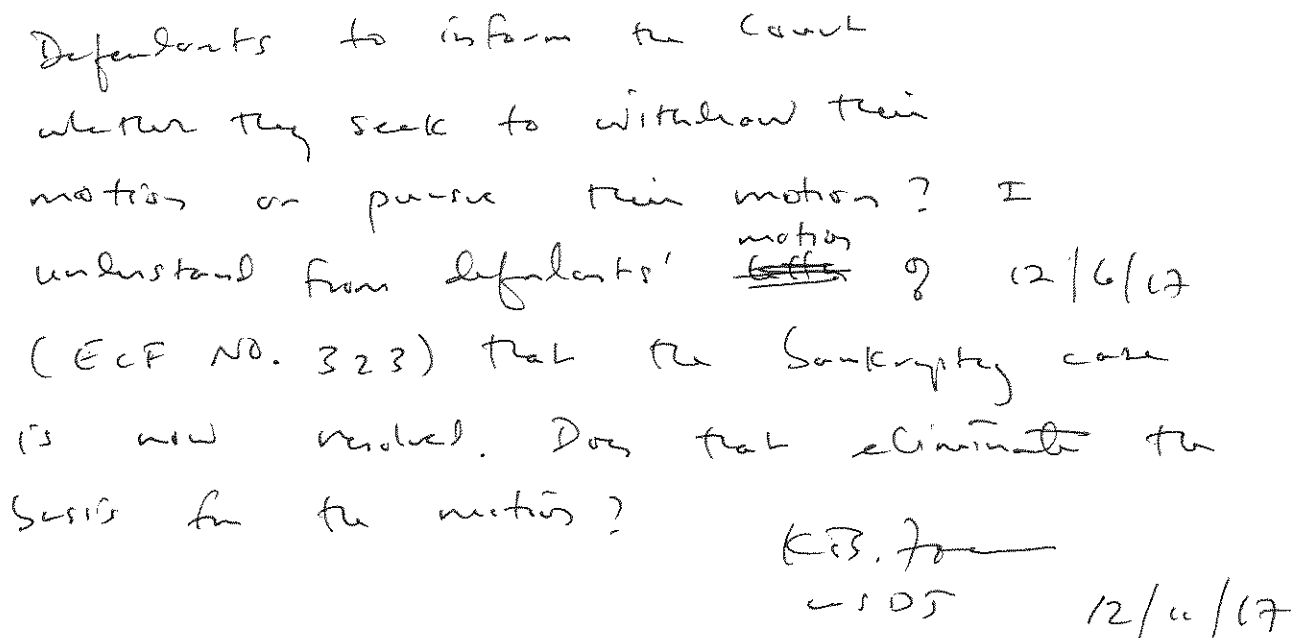 Defendants to inform the Court
whether they seek to withdraw their
motion or pursue their motion? I
understand from defendants' motion of 12/6/17
(ECF NO. 323) that the bankruptcy case
is now resolved. Does that eliminate the
basis for the motion?
K.B. 
USDJ 12/11/17